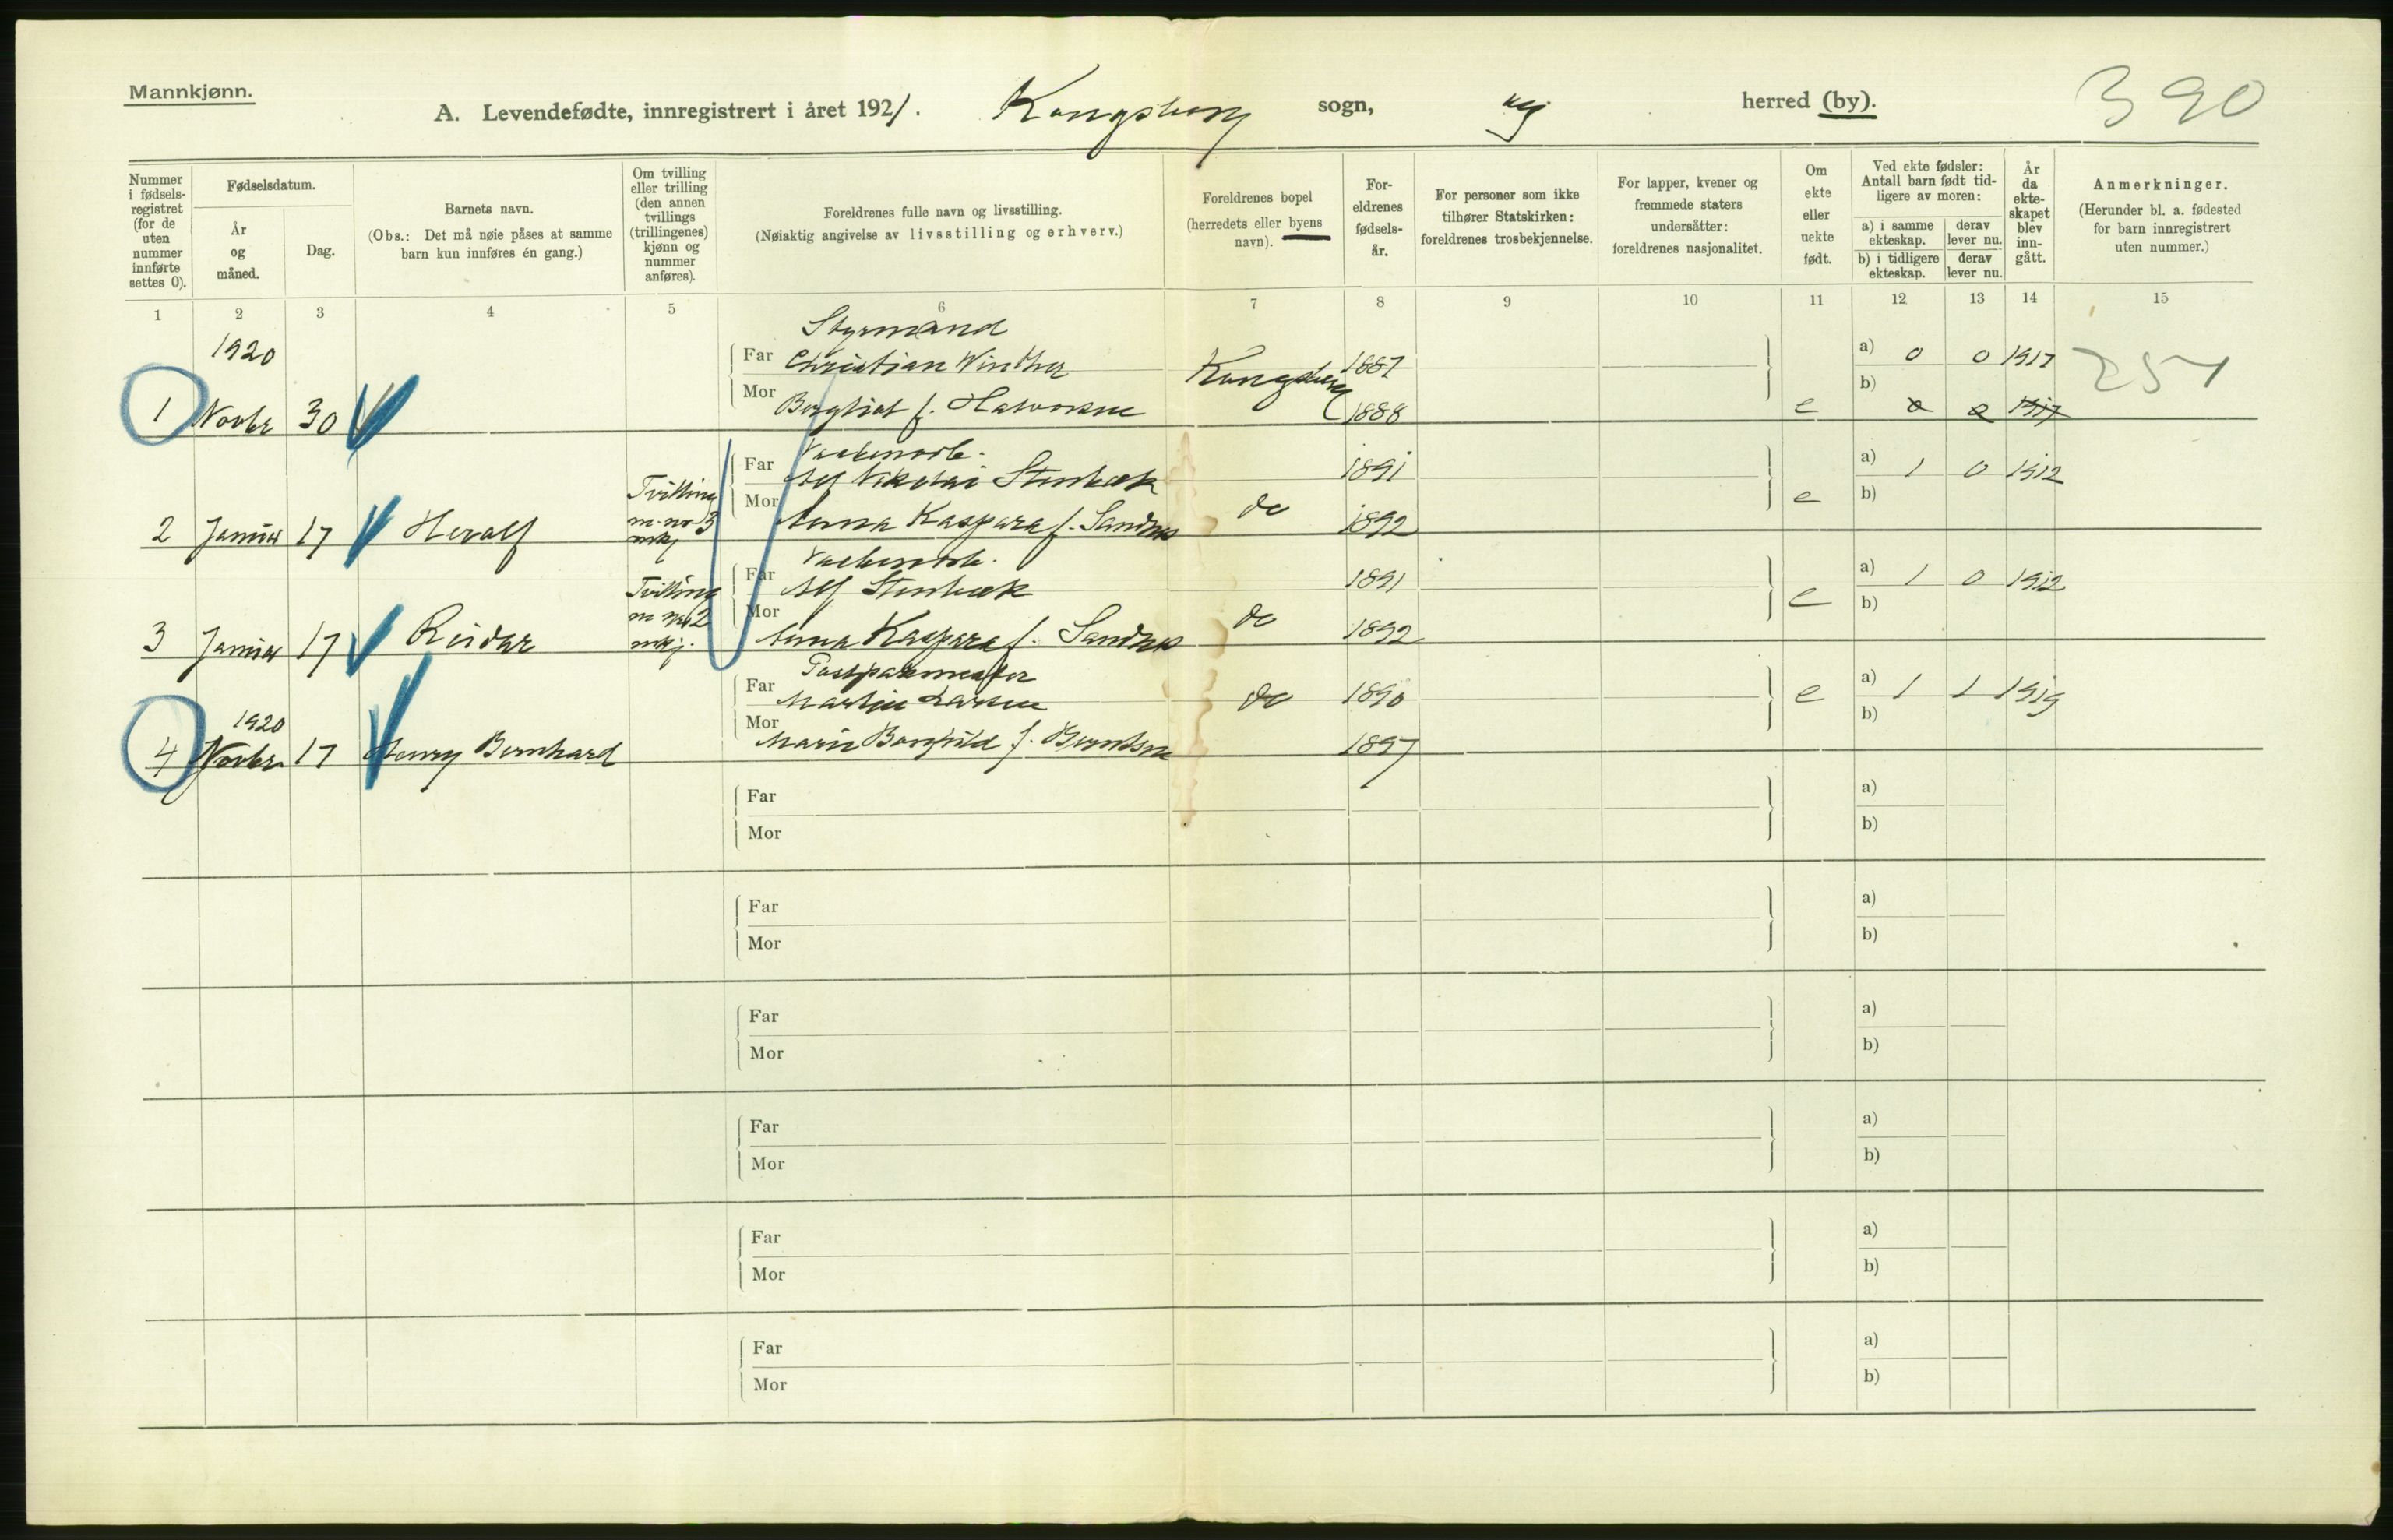 Mannkjønn.
A. Levendefødte, innregistrert i året 1921. Kongsberg sogn, herred (by). 390
Nummer i fødsels-registret (for de uten nummer innførte settes 0).
Fødselsdatum.
År og måned.
Dag.
Barnets navn.
(Obs.: Det må nøie påses at samme barn kun innføres én gang.)
Om tvilling eller trilling (den annen tvillings (trillingenes) kjønn og nummer anføres).
Foreldrenes fulle navn og livsstilling.
(Nøiaktig angivelse av livsstilling og erhverv.)
Foreldrenes bopel
(herredets eller byens navn).
For-eldrenes fødsels-år.
For personer som ikke tilhører Statskirken: foreldrenes trosbekjennelse.
For lapper, kvener og fremmede staters undersåtter: foreldrenes nasjonalitet.
Om ekte eller uekte født.
Ved ekte fødsler: Antall barn født tid-ligere av moren:
a) i samme ekteskap.
derav lever nu.
b) i tidligere ekteskap.
derav lever nu.
År da ekte-skapet blev inn-gått.
Anmerkninger.
(Herunder bl. a. fødested for barn innregistrert uten nummer.)
1 2 3 4 5 6 7 8 9 10 11 12 13 14 15
Styrmand
1920 Far Christian Winther Kongsberg 1887 a) 0 0 1917 257
1 Novbr 30 Mor Bergliot f. Halvorsen 1888 e b) 0 0 1917
Far Alf Nikolai Stenbæk 1891 a) 1 0 1912
2 Januar 17 Heralf Tvilling m. nr 3 mkj Mor Anna Kaspara f. Sandnes do 1892 e b)
Far Alf Stenbæk 1891 a) 1 0 1912
3 Januar 17 Reidar Tvilling m nr 2 mkj. Mor Anna Kaspara f. Sandnes do 1892 e b)
Far Martin Larsen do 1890 e a) 1 1 1919
1920
4 Novbr 17 Henry Bernhard Mor Marie Borghild f. Berntsen 1897 b)
Far a)
Mor b)
Far a)
Mor b)
Far a)
Mor b)
Far a)
Mor b)
Far a)
Mor b)
Far a)
Mor b)